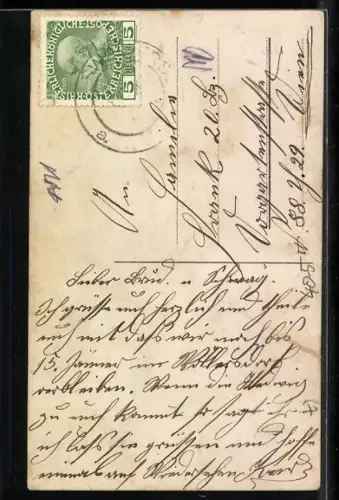 KAISERLICHE KÖNIGLICHE ÖSTERREICHISCHE POST
5 HELLER 5
An
Familie
Frank 20. Bz.
Vorgartenstraße
N. 88 T. 29. Wien
Lieber Brud. u Schwäg.
Ich grüsse euch herzlich und theile
euch mit daß wir noch bis
15. Jänner in Wollersdorf
verbleiben. Wenn die Hedwig
zu euch kommt so sagt ihr
ich lass sie grüssen und hoffe
einmal auf Wiedersehen